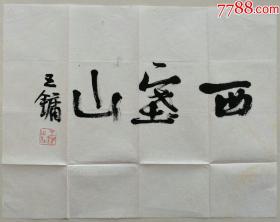 7788.com
西塞山
王鏞